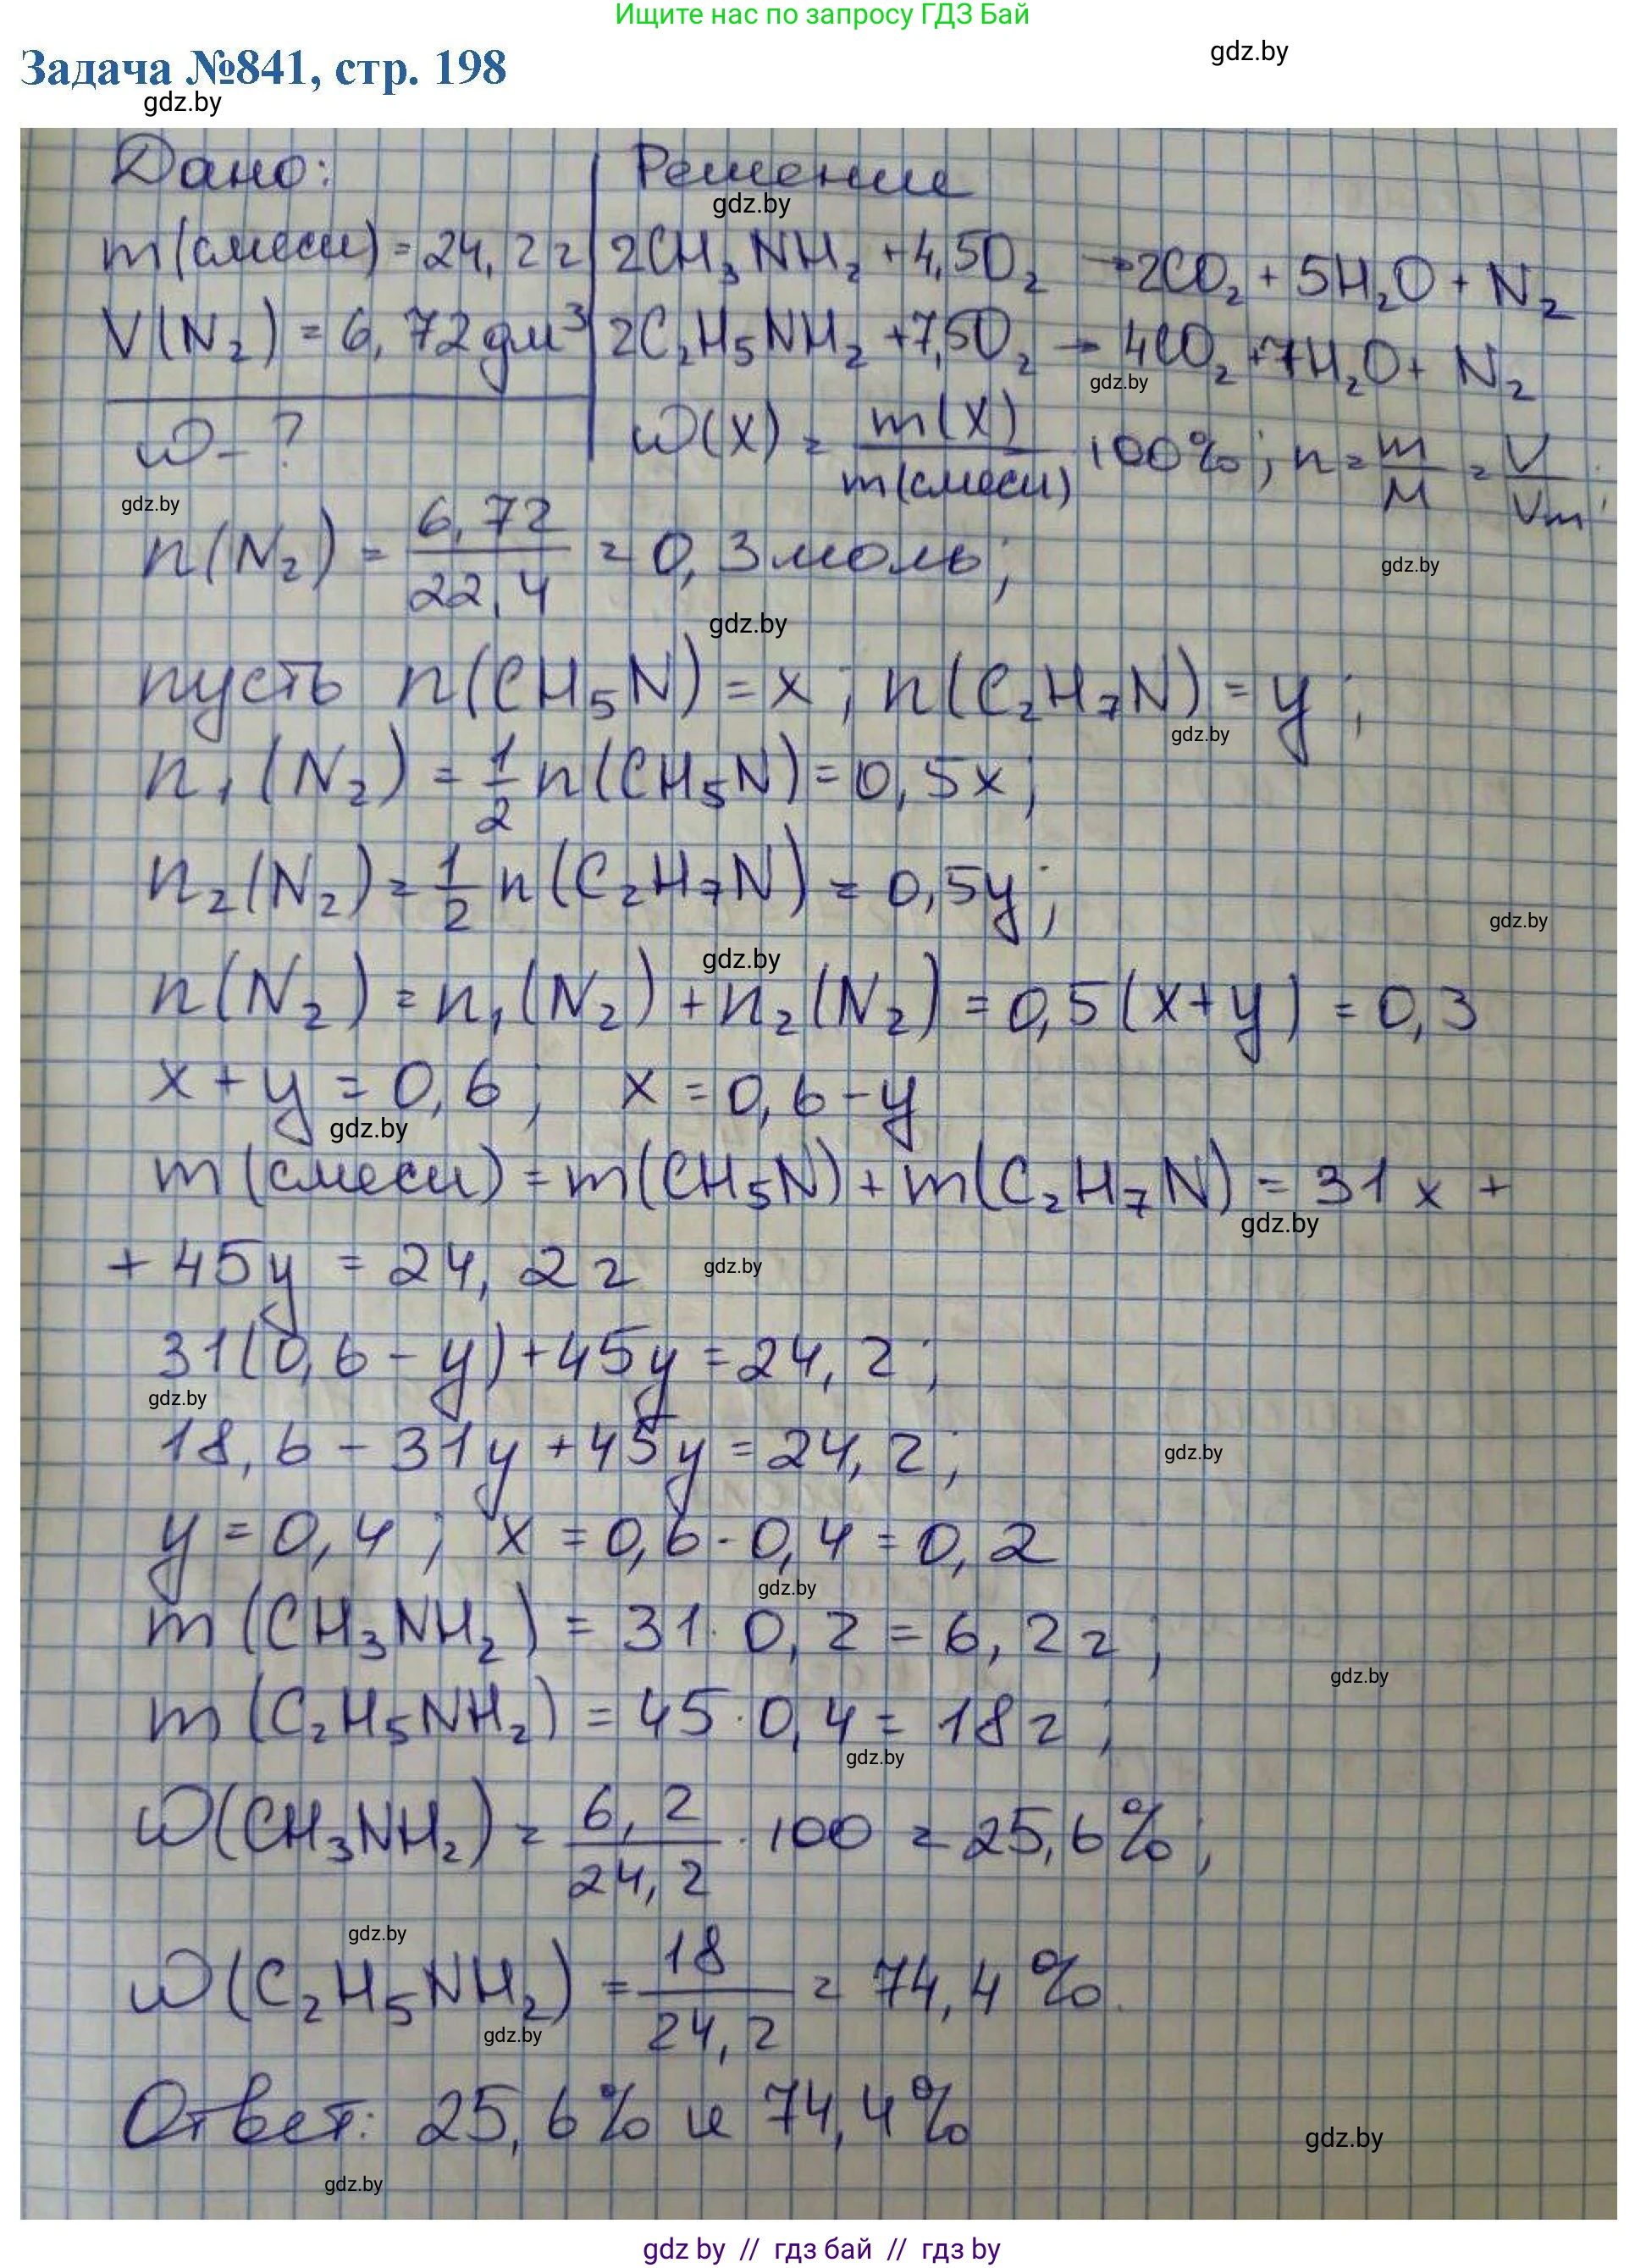 Ищите нас по запросу ГДЗ Бай
gdz.by
Задача №841, стр. 198
gdz.by
Дано: Решение
gdz.by
m(смеси) = 24,2 г 2CH₃NH₂ + 4,5O₂ → 2CO₂ + 5H₂O + N₂
V(N₂) = 6,72 дм³ 2C₂H₅NH₂ + 7,5O₂ → 4CO₂ + 7H₂O + N₂
gdz.by
ω - ? ω(X) = m(X)/m(смеси) · 100%; n = m/M = V/Vm;
gdz.by
n(N₂) = 6,72/22,4 = 0,3 моль;
gdz.by
gdz.by
пусть n(CH₅N) = x; n(C₂H₇N) = y;
gdz.by
n₁(N₂) = 1/2 n(CH₅N) = 0,5x;
n₂(N₂) = 1/2 n(C₂H₇N) = 0,5y;
gdz.by
gdz.by
n(N₂) = n₁(N₂) + n₂(N₂) = 0,5(x+y) = 0,3
x + y = 0,6; x = 0,6 - y
gdz.by
m(смеси) = m(CH₅N) + m(C₂H₇N) = 31x +
gdz.by
+ 45y = 24,2 г
gdz.by
31(0,6 - y) + 45y = 24,2;
gdz.by
18,6 - 31y + 45y = 24,2;
gdz.by
y = 0,4; x = 0,6 - 0,4 = 0,2
gdz.by
m(CH₃NH₂) = 31 · 0,2 = 6,2 г;
gdz.by
m(C₂H₅NH₂) = 45 · 0,4 = 18 г;
gdz.by
ω(CH₃NH₂) = 6,2/24,2 · 100 = 25,6%;
gdz.by
ω(C₂H₅NH₂) = 18/24,2 = 74,4%.
gdz.by
Ответ: 25,6% и 74,4%
gdz.by
gdz.by
gdz by // гдз бай // гдз by